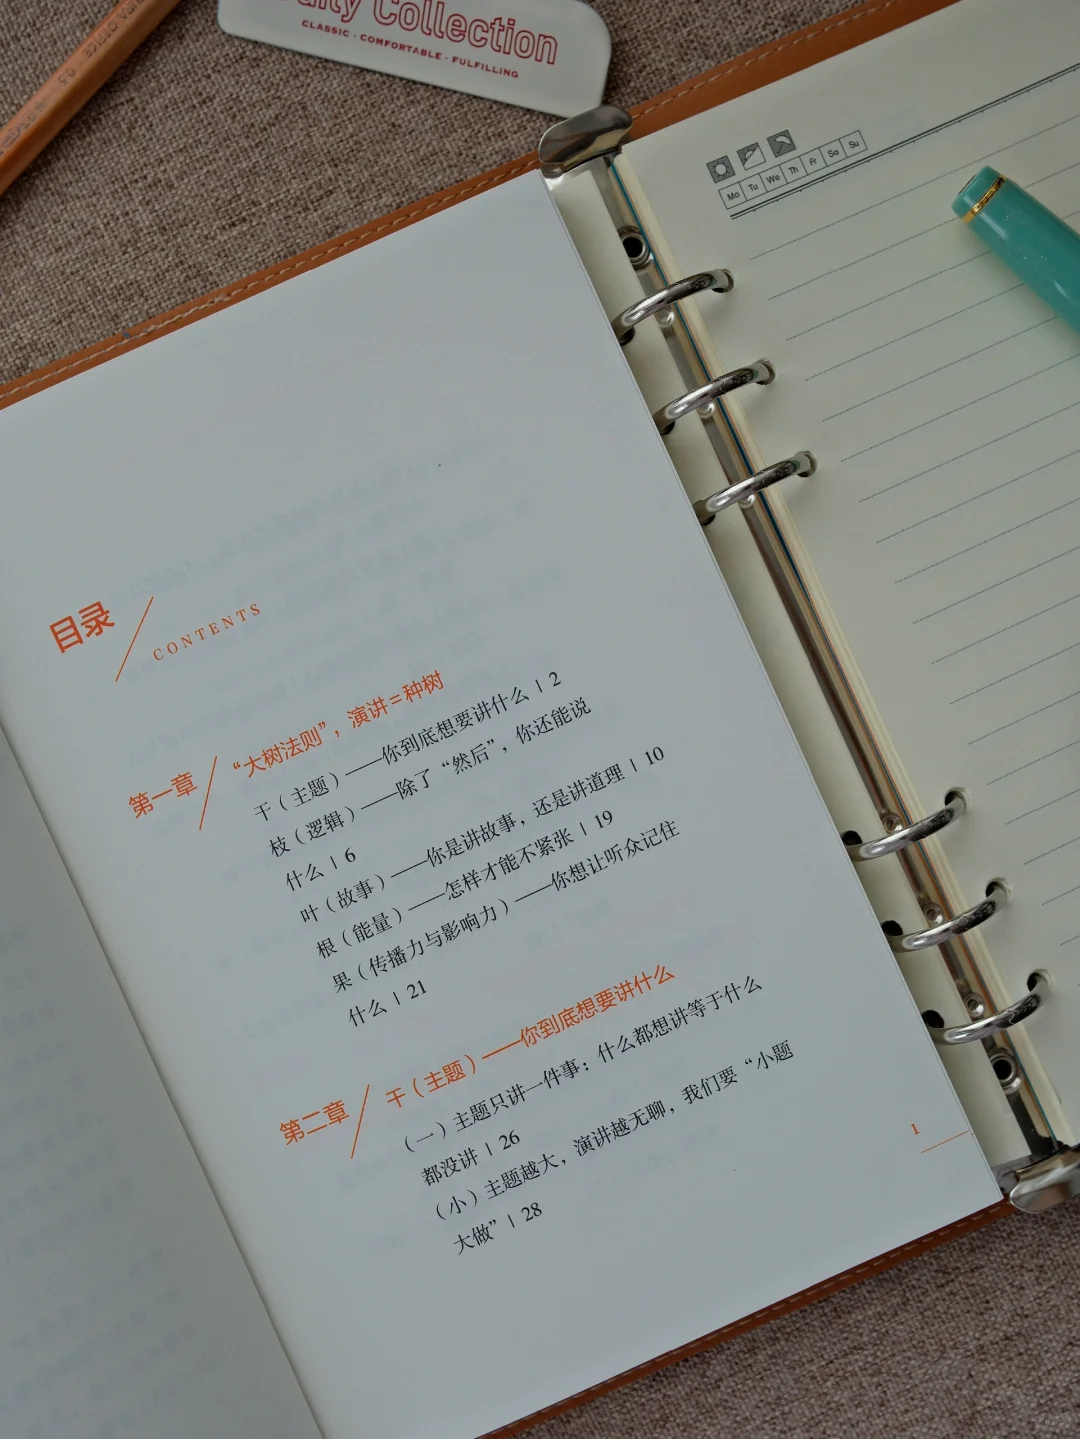 Collection
CLASSIC · COMFORTABLE · FULFILLING
Mo Tu We Th Fr Sa Su
目录
CONTENTS
第一章
“大树法则”，演讲=种树
干（主题）——你到底想要讲什么 | 2
枝（逻辑）——除了“然后”，你还能说
什么 | 6
叶（故事）——你是讲故事，还是讲道理 | 10
根（能量）——怎样才能不紧张 | 19
果（传播力与影响力）——你想让听众记住
什么 | 21
第二章
干（主题）——你到底想要讲什么
（一）主题只讲一件事：什么都想讲等于什么
都没讲 | 26
（小）主题越大，演讲越无聊，我们要“小题
大做” | 28
1